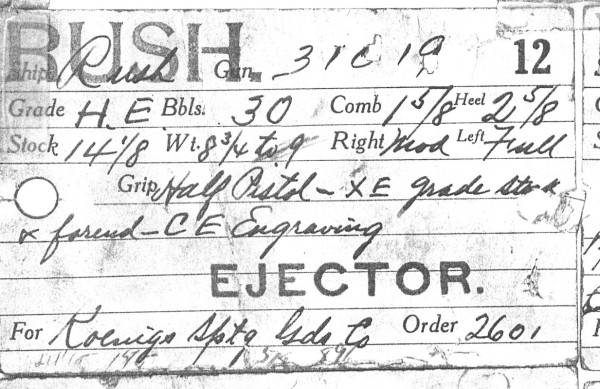 RUSH
Ship Rush Gun 31C19 12
Grade H.E Bbls. 30 Comb 1 5/8 Heel 2 5/8
Stock 14 1/8 Wt. 8 3/4 to 9 Right Mod Left Full
Grip Half Pistol - XE grade stock
& forend - CE Engraving
EJECTOR.
For Koenigs Sptg Gds Co Order 2601